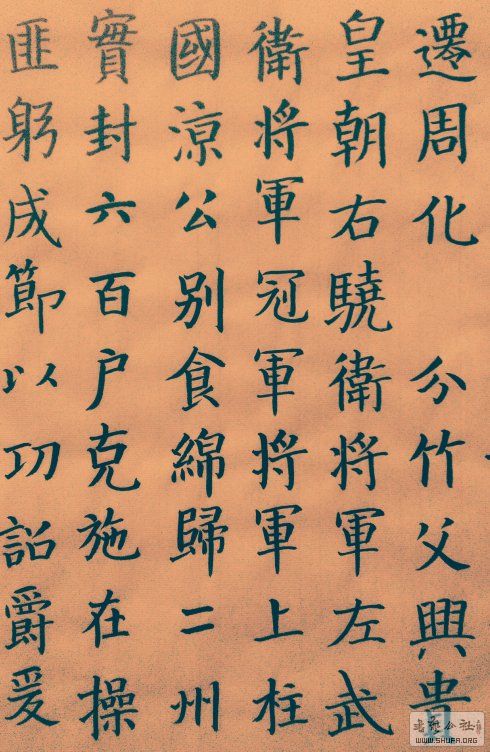 遷周化 分竹父興貴
皇朝右驍衛將軍左武
衛将軍冠軍将軍上柱
國涼公别食綿歸二州
實封六百户克施在操
匪躬成節以功詔爵爰
WWW.SHUFA.ORG